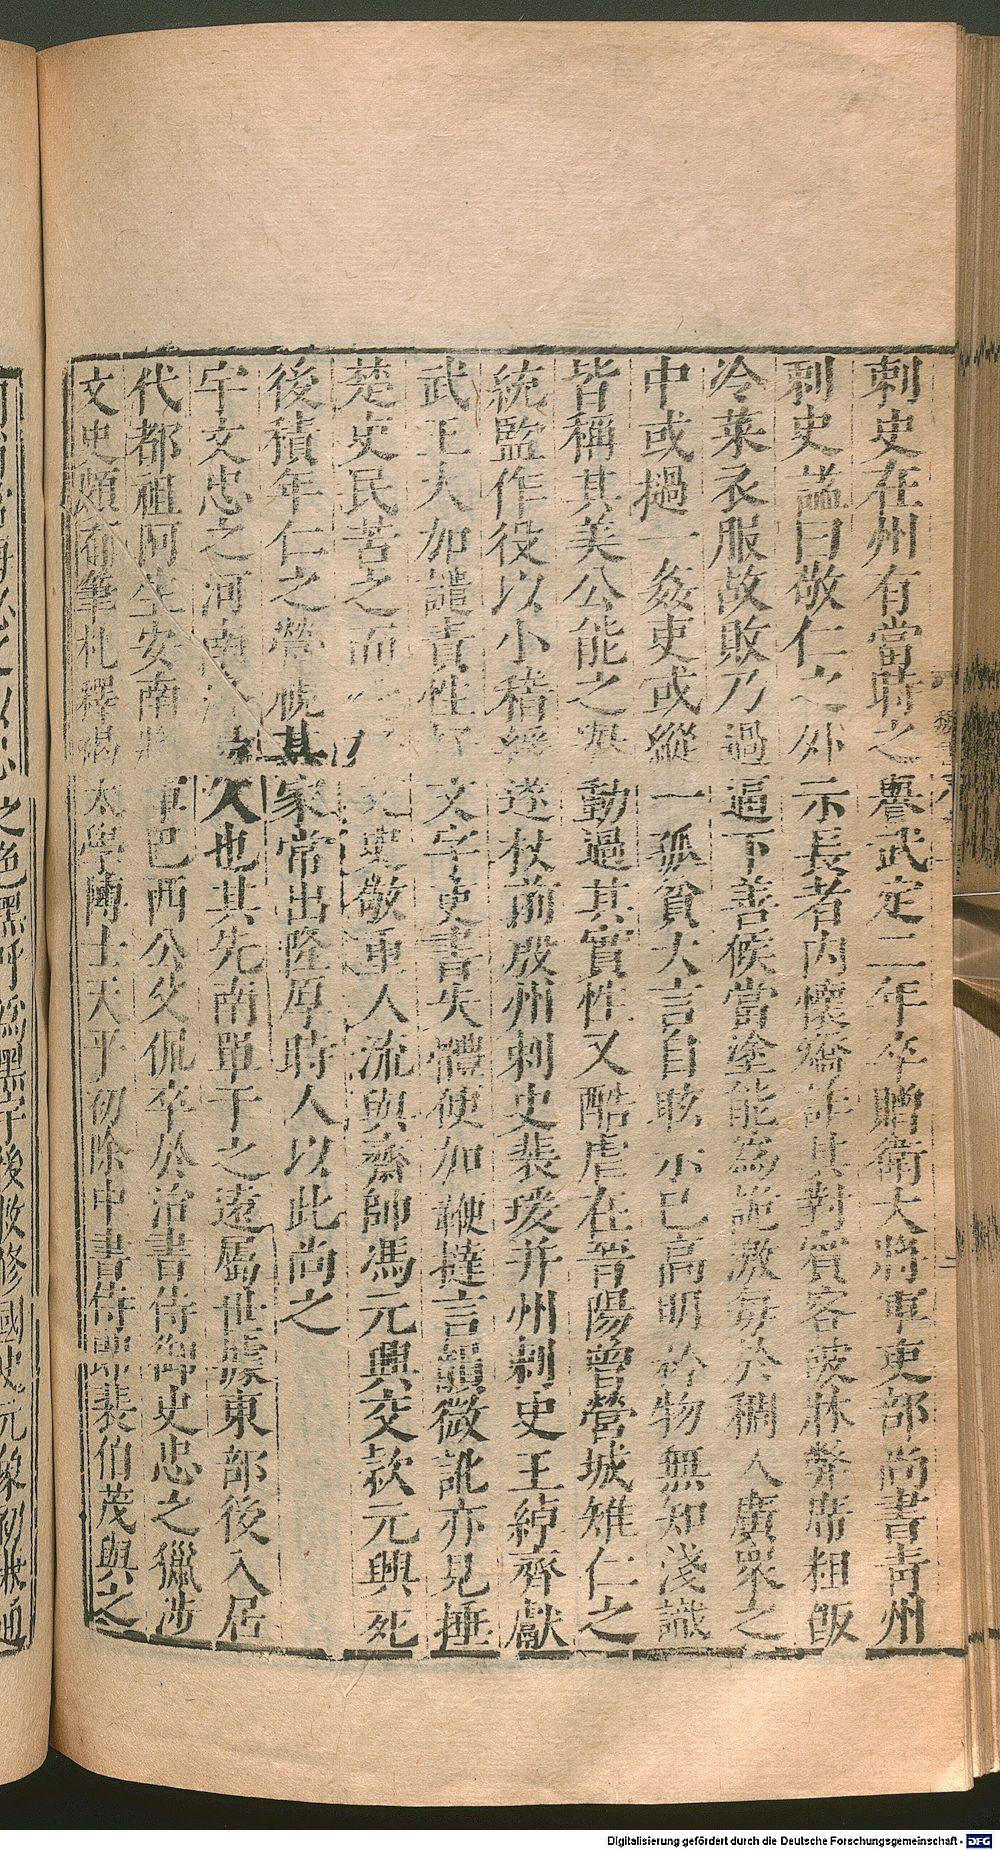 刺史在州有當時之譽武定二年卒贈衛大將軍吏部尚書靑州
刺史諡曰敬仁之外示長者內懷矯詐其對賓客破牀弊席粗飯
冷菜衣服故敗乃過逼下善候當塗能爲詭激每於稠人廣衆之
中或撾一姦吏或縱一孤貧大言自眩示已高明矜物無知淺識
皆稱其美公能之譽動過其實性又酷虐在晉陽曾營城雉仁之
統監作役以小稽緩遂杖前殷州刺史裴瑗并州刺史王綽齊獻
武王大加譴責性好文字吏書失體便加鞭撻言韻微訛亦見捶
楚吏民苦之而 文史敬重人流與齋帥馮元興交款元興死
後積年仁之營視其家常出隆厚時人以此尚之
宇文忠之河南 人也其先南單于之遠屬世據東部後入居
代都祖阿生安南將軍巴西公父侃卒於治書侍御史忠之獵涉
文史頗有筆札釋褐太學博士天平初除中書侍郎裴伯茂與之
之色黑呼爲黑宇後敕修國史元象初兼通
Digitalisierung gefördert durch die Deutsche Forschungsgemeinschaft - DFG